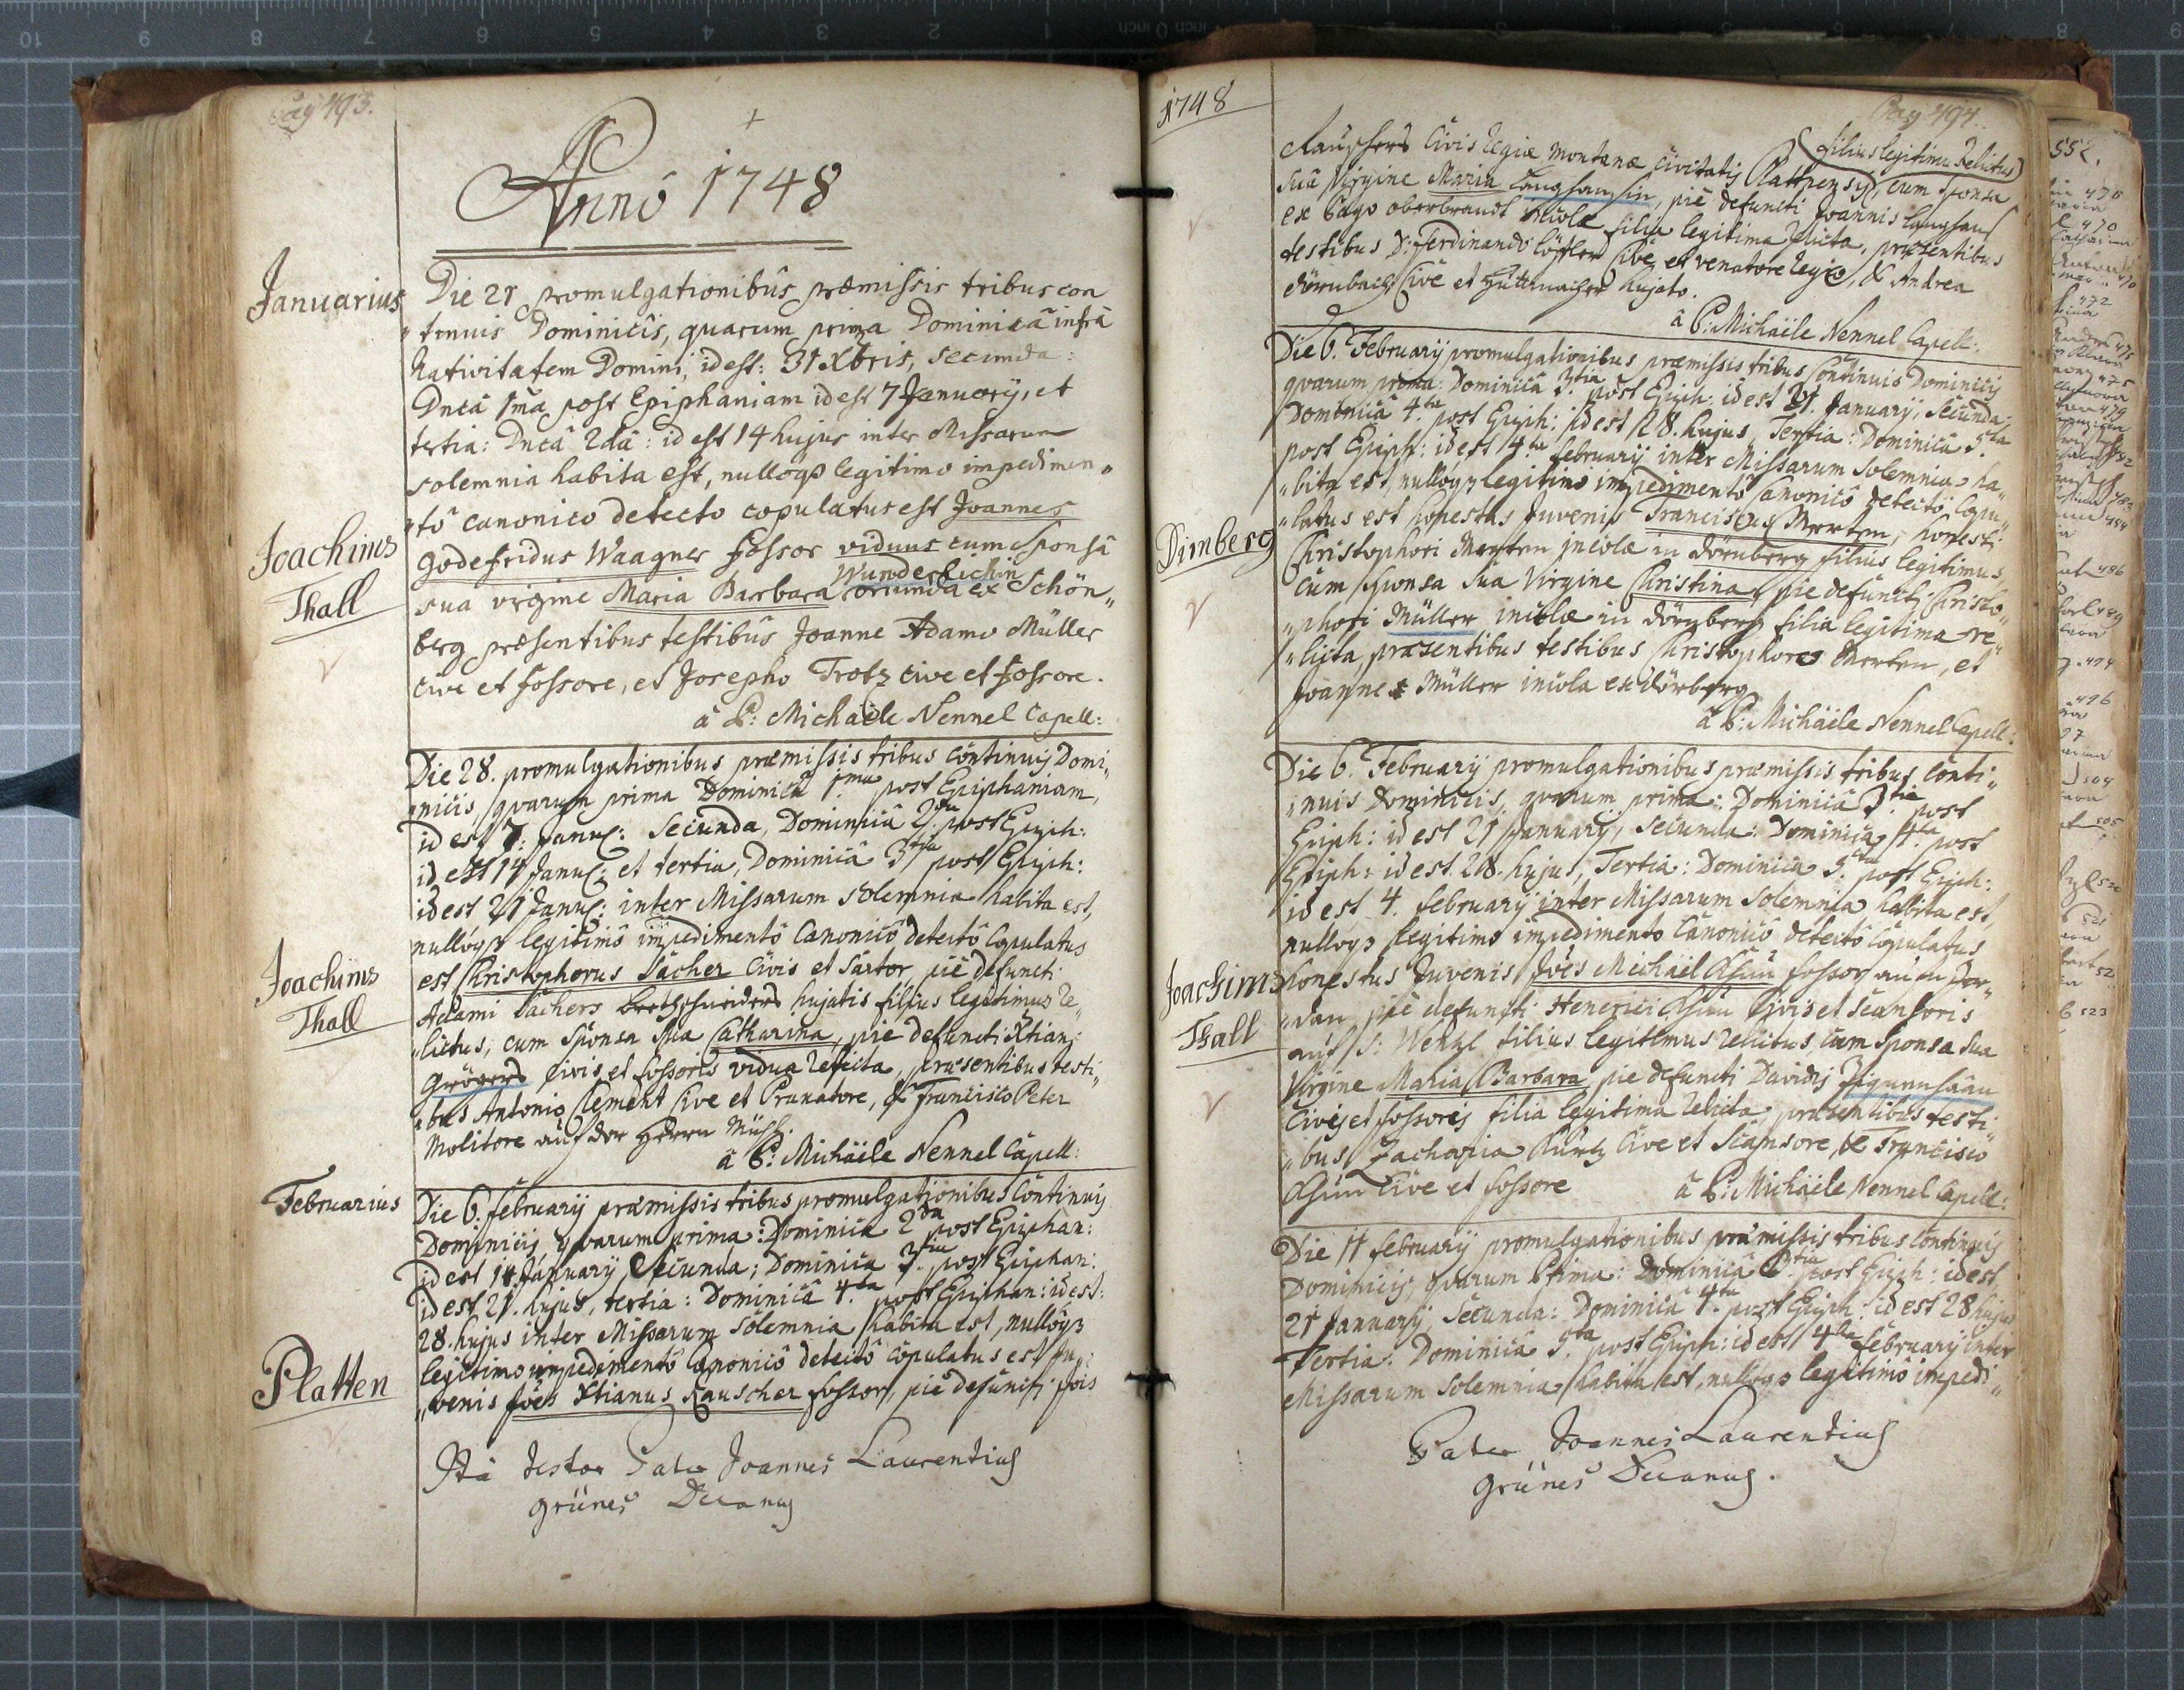 pag 493.
Anno 1748
Januarius
Die 21 promulgationibus præmissis tribus con
"tenuis Dominicis, quarum prima Dominicâ infrâ
Nativitatem Domini, id est: 31 Xbris, secunda:
Dncâ 1ma post Epiphaniam id est 7 January, et
tertia: Dncâ 2dâ: id est 14 hujus inter Missarum
solemnia habita est, nulloqz legitimo impedimen"
Joachims
Thall
"tô canonico detecto copulatus est Joannes
Godefridus Waagner fossor viduus cum sponsâ
Wunderlichin
sua virgine Maria Barbara oriunda ex Schön"
berg præsentibus testibus Joanne Adamo Müller
cive et fossore, et Josepho Trotz cive et fossore.
â P: Michaële Nennel Capell:
Die 28. promulgationibus præmissis tribus continuis Domi"
"nicis, quarum prima Dominicâ 1.ma post Epiphaniam,
id est 7: Janu: Secunda, Dominicâ 2.da post Epiph:
id est 14 Janu: et tertia, Dominicâ 3.tia post Epiph:
id est 21 Janu: inter Missarum solemnia habita est,
nullóqz legitimô impedimentô Canonicô detectô Copulatus
Joachims
Thall
est Christophorus Sacher Civis et Sartor, piè defuncti
Adami Sachers hujatis filius legitimus re"
"lictus, cum Sponsa sua Catharina, piè defuncti Xtiani
Grögers Civis et fossoris vidua relicta, præsentibus testi"
"bus Antonio Clement Cive et , & Francisco Peter
Molitore auf der Herrn Mühl.
â P: Michäele Nennel Capell:
Februarius
Die 6. february præmissis tribus promulgationibus Continuis
Dominicis, quarum prima: Dominica 2da post Epiphan:
id est 14. January, Secunda; Dominica 3.tia post Epiphan:
id est 21. hujus, tertia: Dominicâ 4.ta post Epiphan: id est:
28. hujus inter Missarum Solemnia habita est, nullôqz
Platten
legitimo impedimentô Canonicô detectô copulatus est Ju"
"venis Joês Xtianus Rauscher fossor, piè defuncti Jois
Ita testor Pater Joannes Laurentius
Grünes Decanus
1748
Pag 494.
filius legitimus relictus
Rauschers Civis regiæ montanæ Civitatis Plattensis cum Sponsa
Suâ Virgine Maria Langhansin, piè defuncti Joannis Langhans
ex Pago oberbrandt incolæ filia legitima relicta, præsentibus
testibus D: Ferdinando Löffler Cive et venatore regio, & Andrea
dörnbach Cive et Huttmacher hujate.
â P: Michäele Nennel Capell:
Die 6. February promulgationibus præmissis tribus Continuis Dominicis
quarum prima: Dominicâ 3.tia post Epiph: id est 21. January, Secunda:
Dominicâ 4.ta post Epiph: id est 28. hujus, Tertia: Dominicâ 5.ta
post Epiph: id est 4.ta february inter Missarum Solemnia ha"
"bita est, nulloqz legitimô impedimentô Canonicô detectô Copu"
Dirnberg
"latus est honestus Juvenis Franciscus Merten, honesti
Christophori Merten incolæ in dörnberg filius legitimus,
cum Sponsa sua Virgine Christina, pie defuncti Christo"
"phori Müller incolæ in dörnberg filia legitima re"
"licta, præsentibus testibus Christophoro Merten, et
Joanne Müller incola ex dörberg
â P: Michäele Nennel Capell:
Die 6. February promulgationibus præmissis tribus conti"
"nuis Dominicis, quarum prima: Dominicâ 3.tia post
Epiph: id est 21 January, Secunda: Dominica 4.ta post
Epiph: id est 28. hujus, Tertia: Dominica 5.ta post Epiph:
id est 4. february inter Missarum Solemnia habita est,
nullôqz legitimo impedimento Canonicô detectô Copulatus
Joachims
Thall
honestus Juvenis Joês Michäel fossor
piè defuncti Henerici Civis et Scansoris
auf S: filius legitimus relictus, cum Sponsa sua
Virgine Maria Barbara pie defuncti Davidis
Civis et fossoris filia legitima relicta præsentibus testi"
"bus Zacharia Kurtz Cive et Scansore, & Francisco
Cive et fossore
â P: Michäele Nennel Capell:
Die 11 february promulgationibus præmissis tribus Continuis
Dominicis, quarum Prima: Dominicâ 3.tia post Epiph: id est,
21 January, Secunda: Dominicâ 4.ta post Epiph: id est 28 hujus
Tertia: Dominicâ 5.ta post Epiph: id est 4ta february inter
Missarum Solemnia habita est, nullôqz legitimô impedi"
Pater Joannes Laurentius
Grünes Decanus.